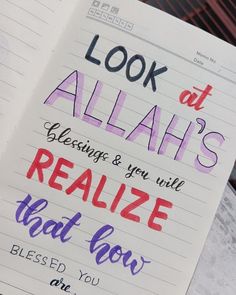 Memo No.
Date
LOOK at
ALLAH'S
blessings & you will
REALIZE
that how
BLESSED YOU
are